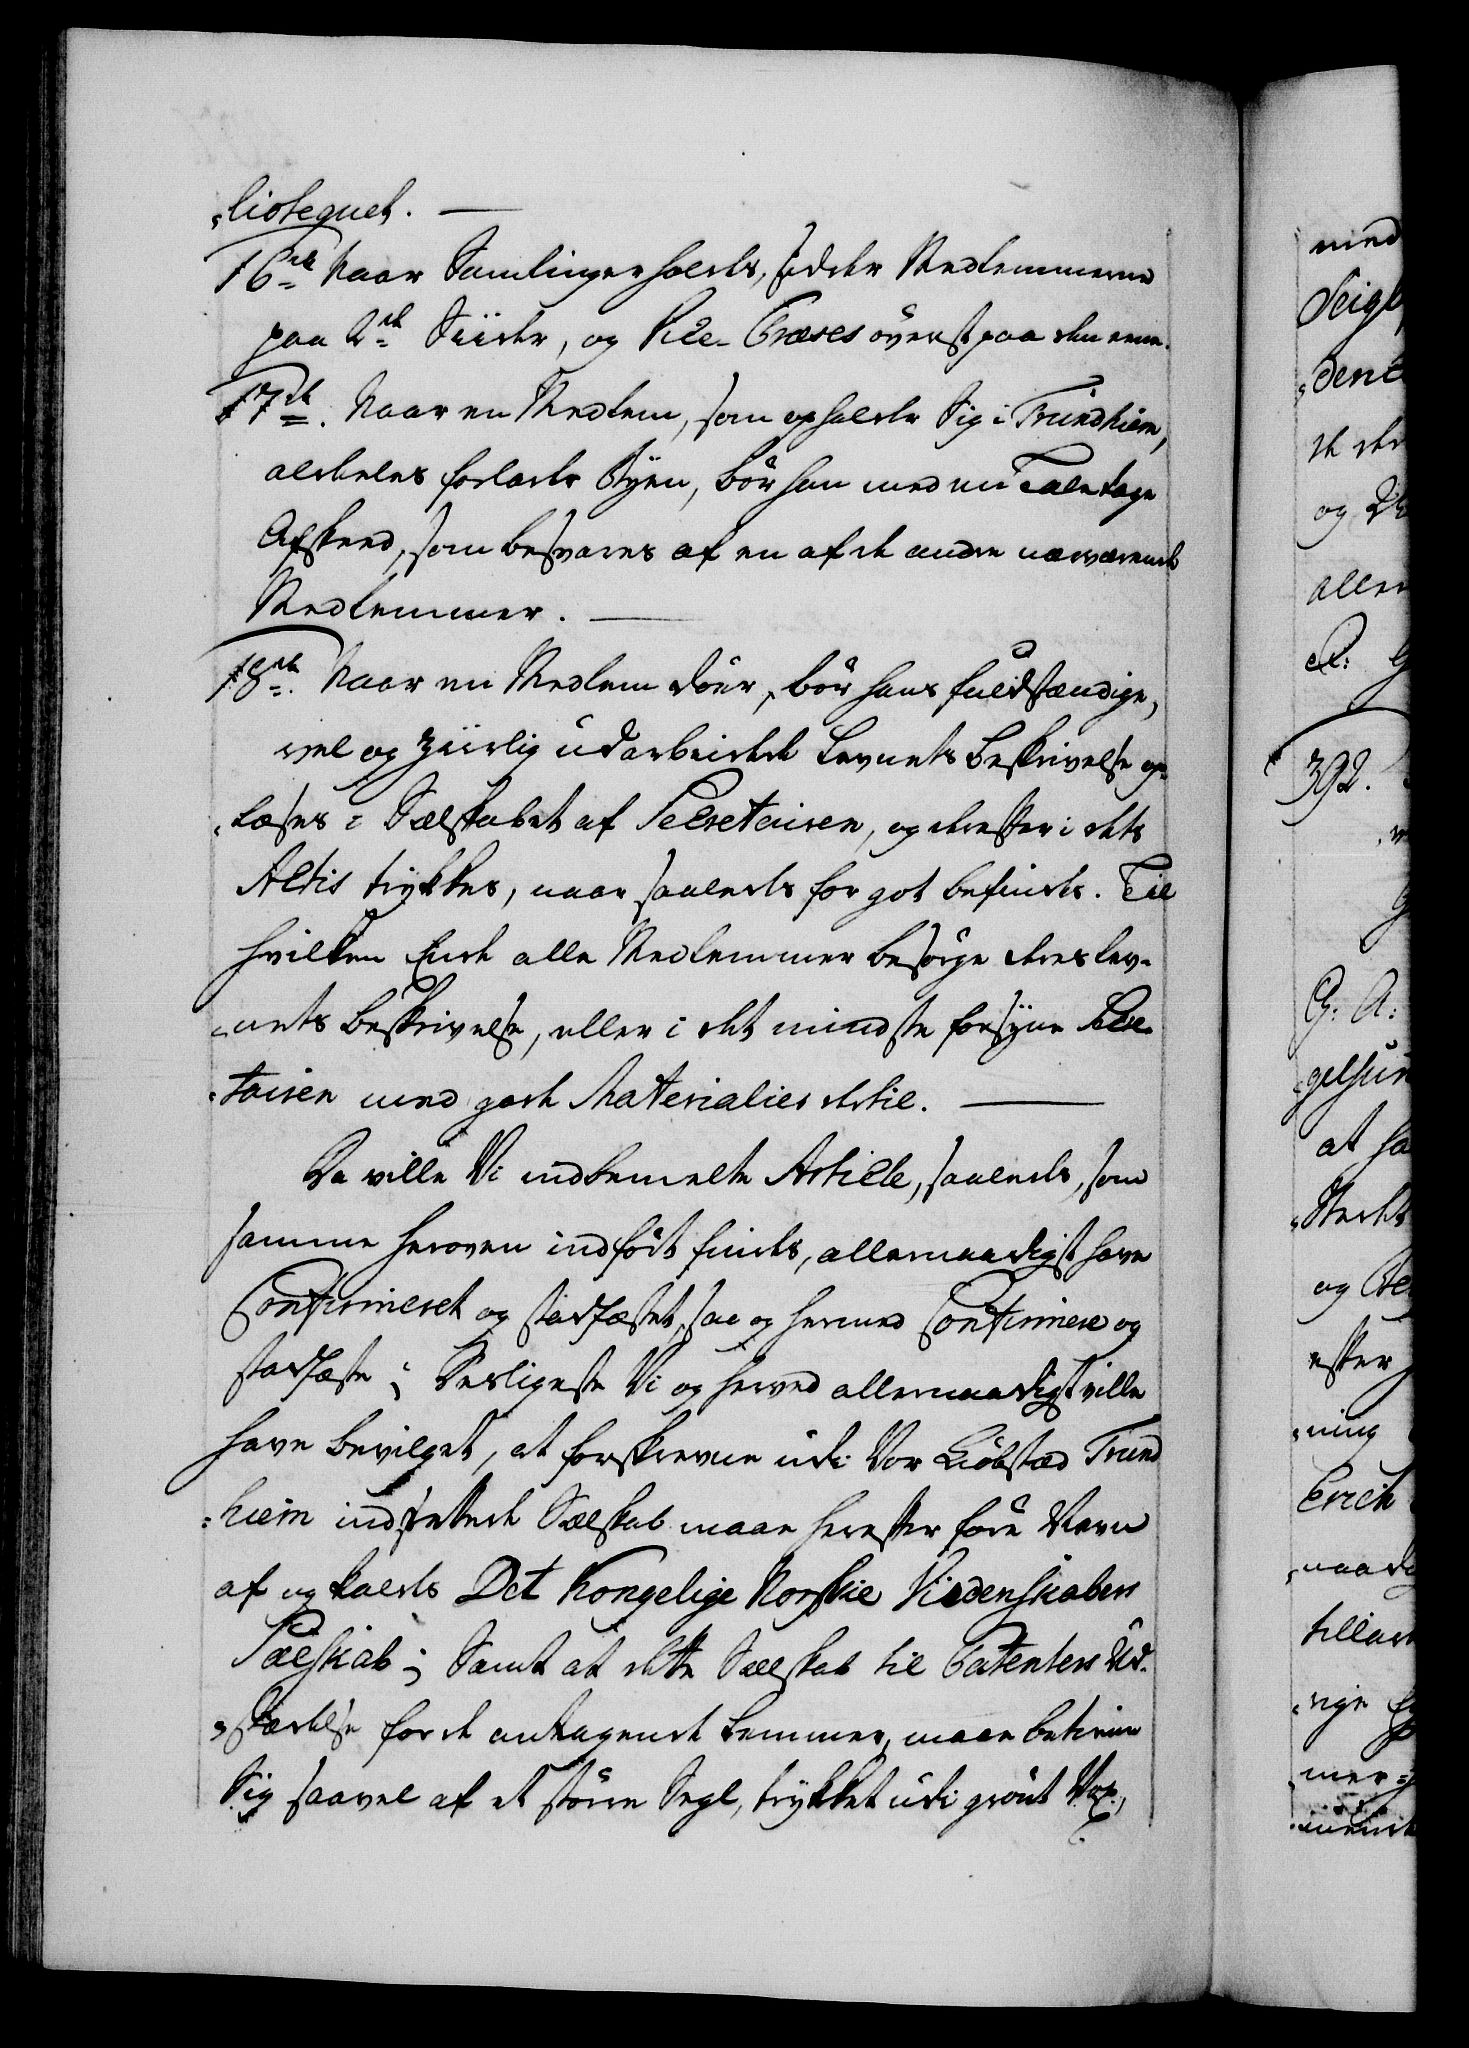 „lioteqvet. —
16de Naar Samlinger holdes, sidder Medlemmerne
paa 2de Siider, og Vice-Præses överst paa den eene.
17de. Naar en Medlem, som opholder Sig i Trundhiem,
aldeeles forlader Byen, bör han med en Tale tage
Afskeed, som besvares af en af de andre nærværende
Medlemmer. —
18de. Naar en Medlem döer, bör hans fuldstændige,
vel og ziirlig udarbeidede Levnets Beskrivelse op-
„læses i Sælskabet af Secretairen, og derefter i dets
Actis trykkes, naar saaledes for got befindes. Til
hvilken Ende alle Medlemmer besörge deres Lev-
„nets Beskrivelse, eller i det mindste forsyne Secre-
„tairen med gode Materialier dertil. —
Da ville Vi indbemelte Article, saaledes, som
samme heroven indfört findes, allernaadigst have
Confirmeret og stadfæstet, saa og hermed Confirmere og
stadfæste; Desligeste Vi og herved allernaadigst ville
have bevilget, at forskrevne udi Vor Kiöbstæd Trund
„hiem indrettede Sælskab maae herefter före Navn
af og kaldes Det Kongelige Norskie Viedenskabers
Sælskab; Samt at dette Sælskab til Patenters Ud-
„stædelse for de antagende Lemmer, maae betiene
Sig saavel af et större Segl, trykket udi grönt Vox,
med
„dent
og
aller
392.
G: A:
at
og
efter
„ning
Erich
„naadig
„mer-